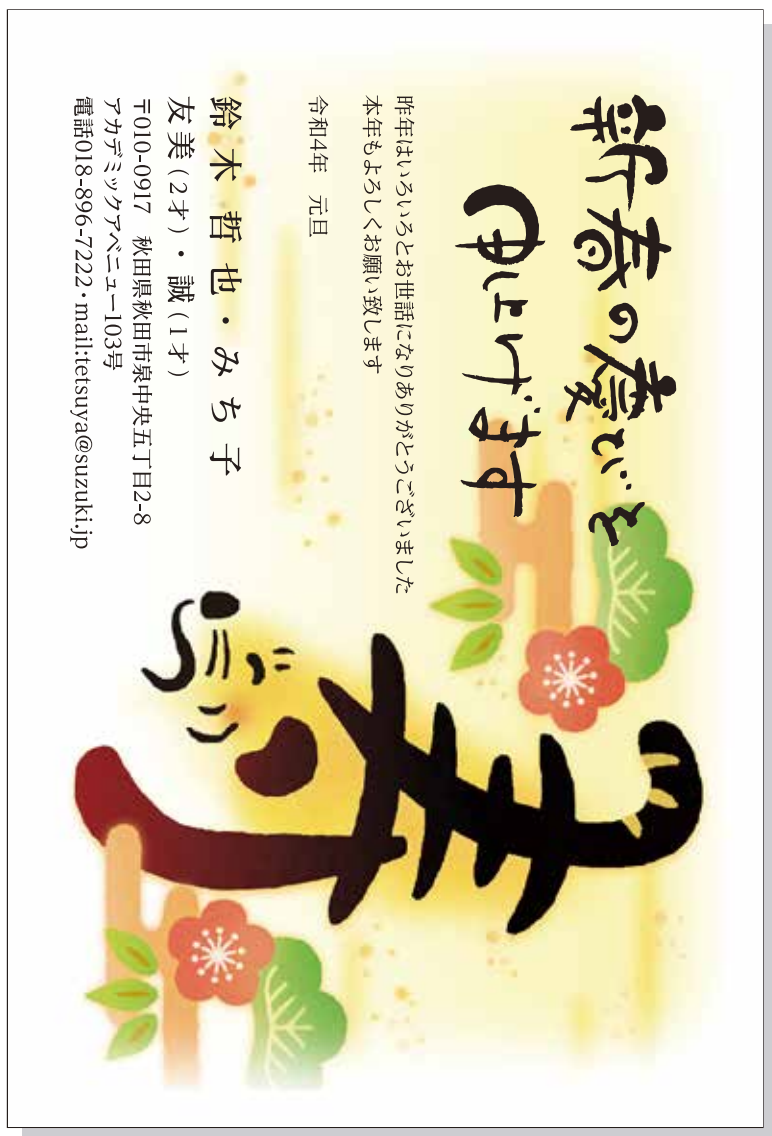 新春の慶びを
申し上げます
昨年はいろいろとお世話になりありがとうございました
本年もよろしくお願い致します
令和4年　元旦
鈴木哲也・みち子
友美（2才）・誠（1才）
〒010-0917　秋田県秋田市泉中央五丁目2-8
アカデミックアベニュー103号
電話018-896-7222・mail:tetsuya@suzuki.jp
寿